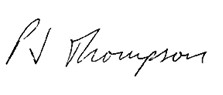 PJ Thompson